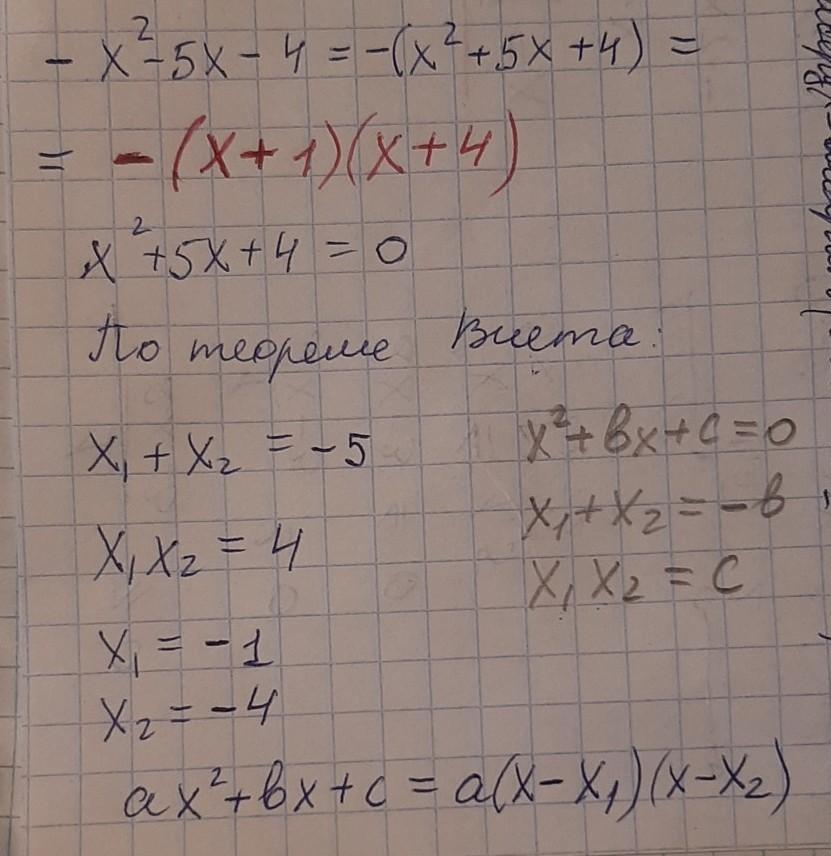 - x² - 5x - 4 = -(x² + 5x + 4) =
= - (x + 1)(x + 4)
x² + 5x + 4 = 0
По теореме Виета:
x₁ + x₂ = -5
x₁x₂ = 4
x² + bx + c = 0
x₁ + x₂ = -b
x₁x₂ = c
x₁ = -1
x₂ = -4
ax² + bx + c = a(x - x₁)(x - x₂)